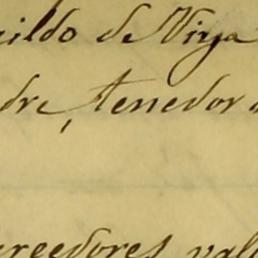 ildo de Virja
dre, tenedor
creedores val